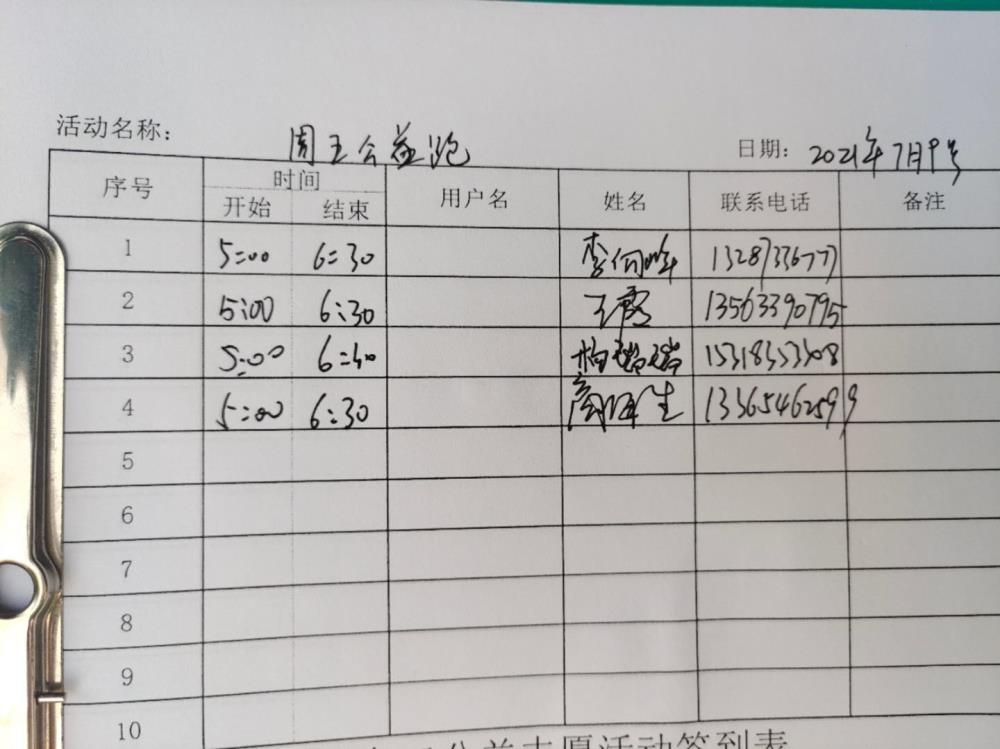 活动名称: 周五公益跑 日期: 2021年7月9号
序号 时间 用户名 姓名 联系电话 备注
开始 结束
1 5:00 6:30 李向峰
2 5:00 6:30 王霞 13563390795
3 5:00 6:30 15318353308
4 5:00 6:30 13365462599
5
6
7
8
9
10
公益志愿活动签到表